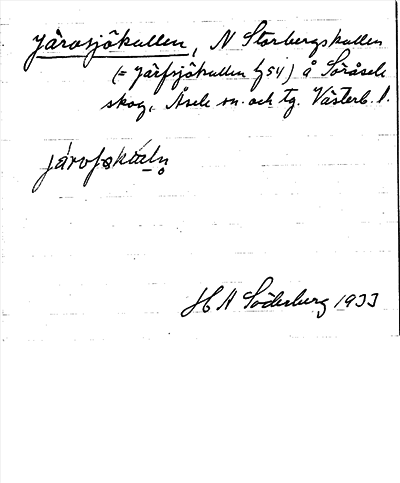 Järvsjökullen, N Storbergskullen
(= Järfsjökullen G54) å Söråsele
skog, Åsele sn. och tg. Västerb. l.
H A Söderberg 1933